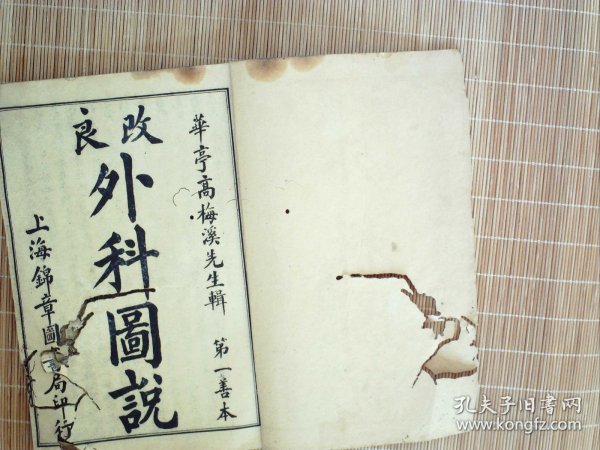 華亭高梅溪先生輯 第一善本
改良
外科圖說
上海錦章圖局印行
孔夫子旧书网
www.kongfz.com